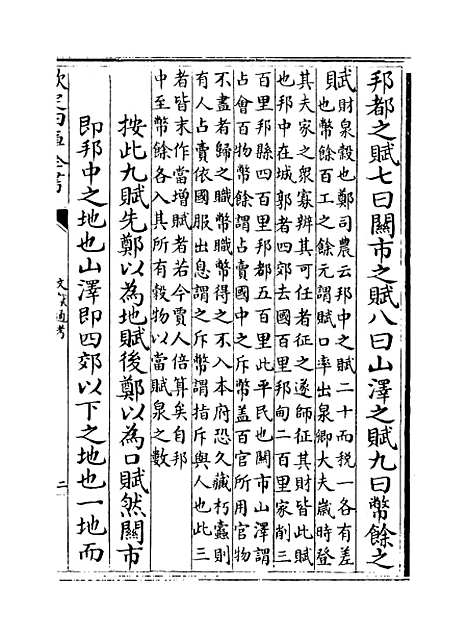 邦都之賦七曰關市之賦八曰山澤之賦九曰幣餘之
賦財泉穀也鄭司農云邦中之賦二十而稅一各有差
也幣餘百工之餘元謂賦口率出泉卿大夫歲時登
其夫家之衆寡辨其可任者征之遂師征其財皆此賦
也邦中在城郭者四郊去國百里邦甸二百里家削三
百里邦縣四百里邦都五百里此平民也關市山澤謂
占會百物幣餘謂占賣國中之斥幣蓋百官所用官物
不盡者歸之職幣職幣得之不入本府恐久藏朽蠹則
有人占賣依國服出息謂之斥幣謂指斥與人也此三
者皆末作當增賦者若今賈人倍算矣自邦
中至幣餘各入其所有穀物以當賦泉之數
按此九賦先鄭以為地賦後鄭以為口賦然關市
即邦中之地也山澤即四郊以下之地也一地而
欽定四庫全書
文獻通考
二